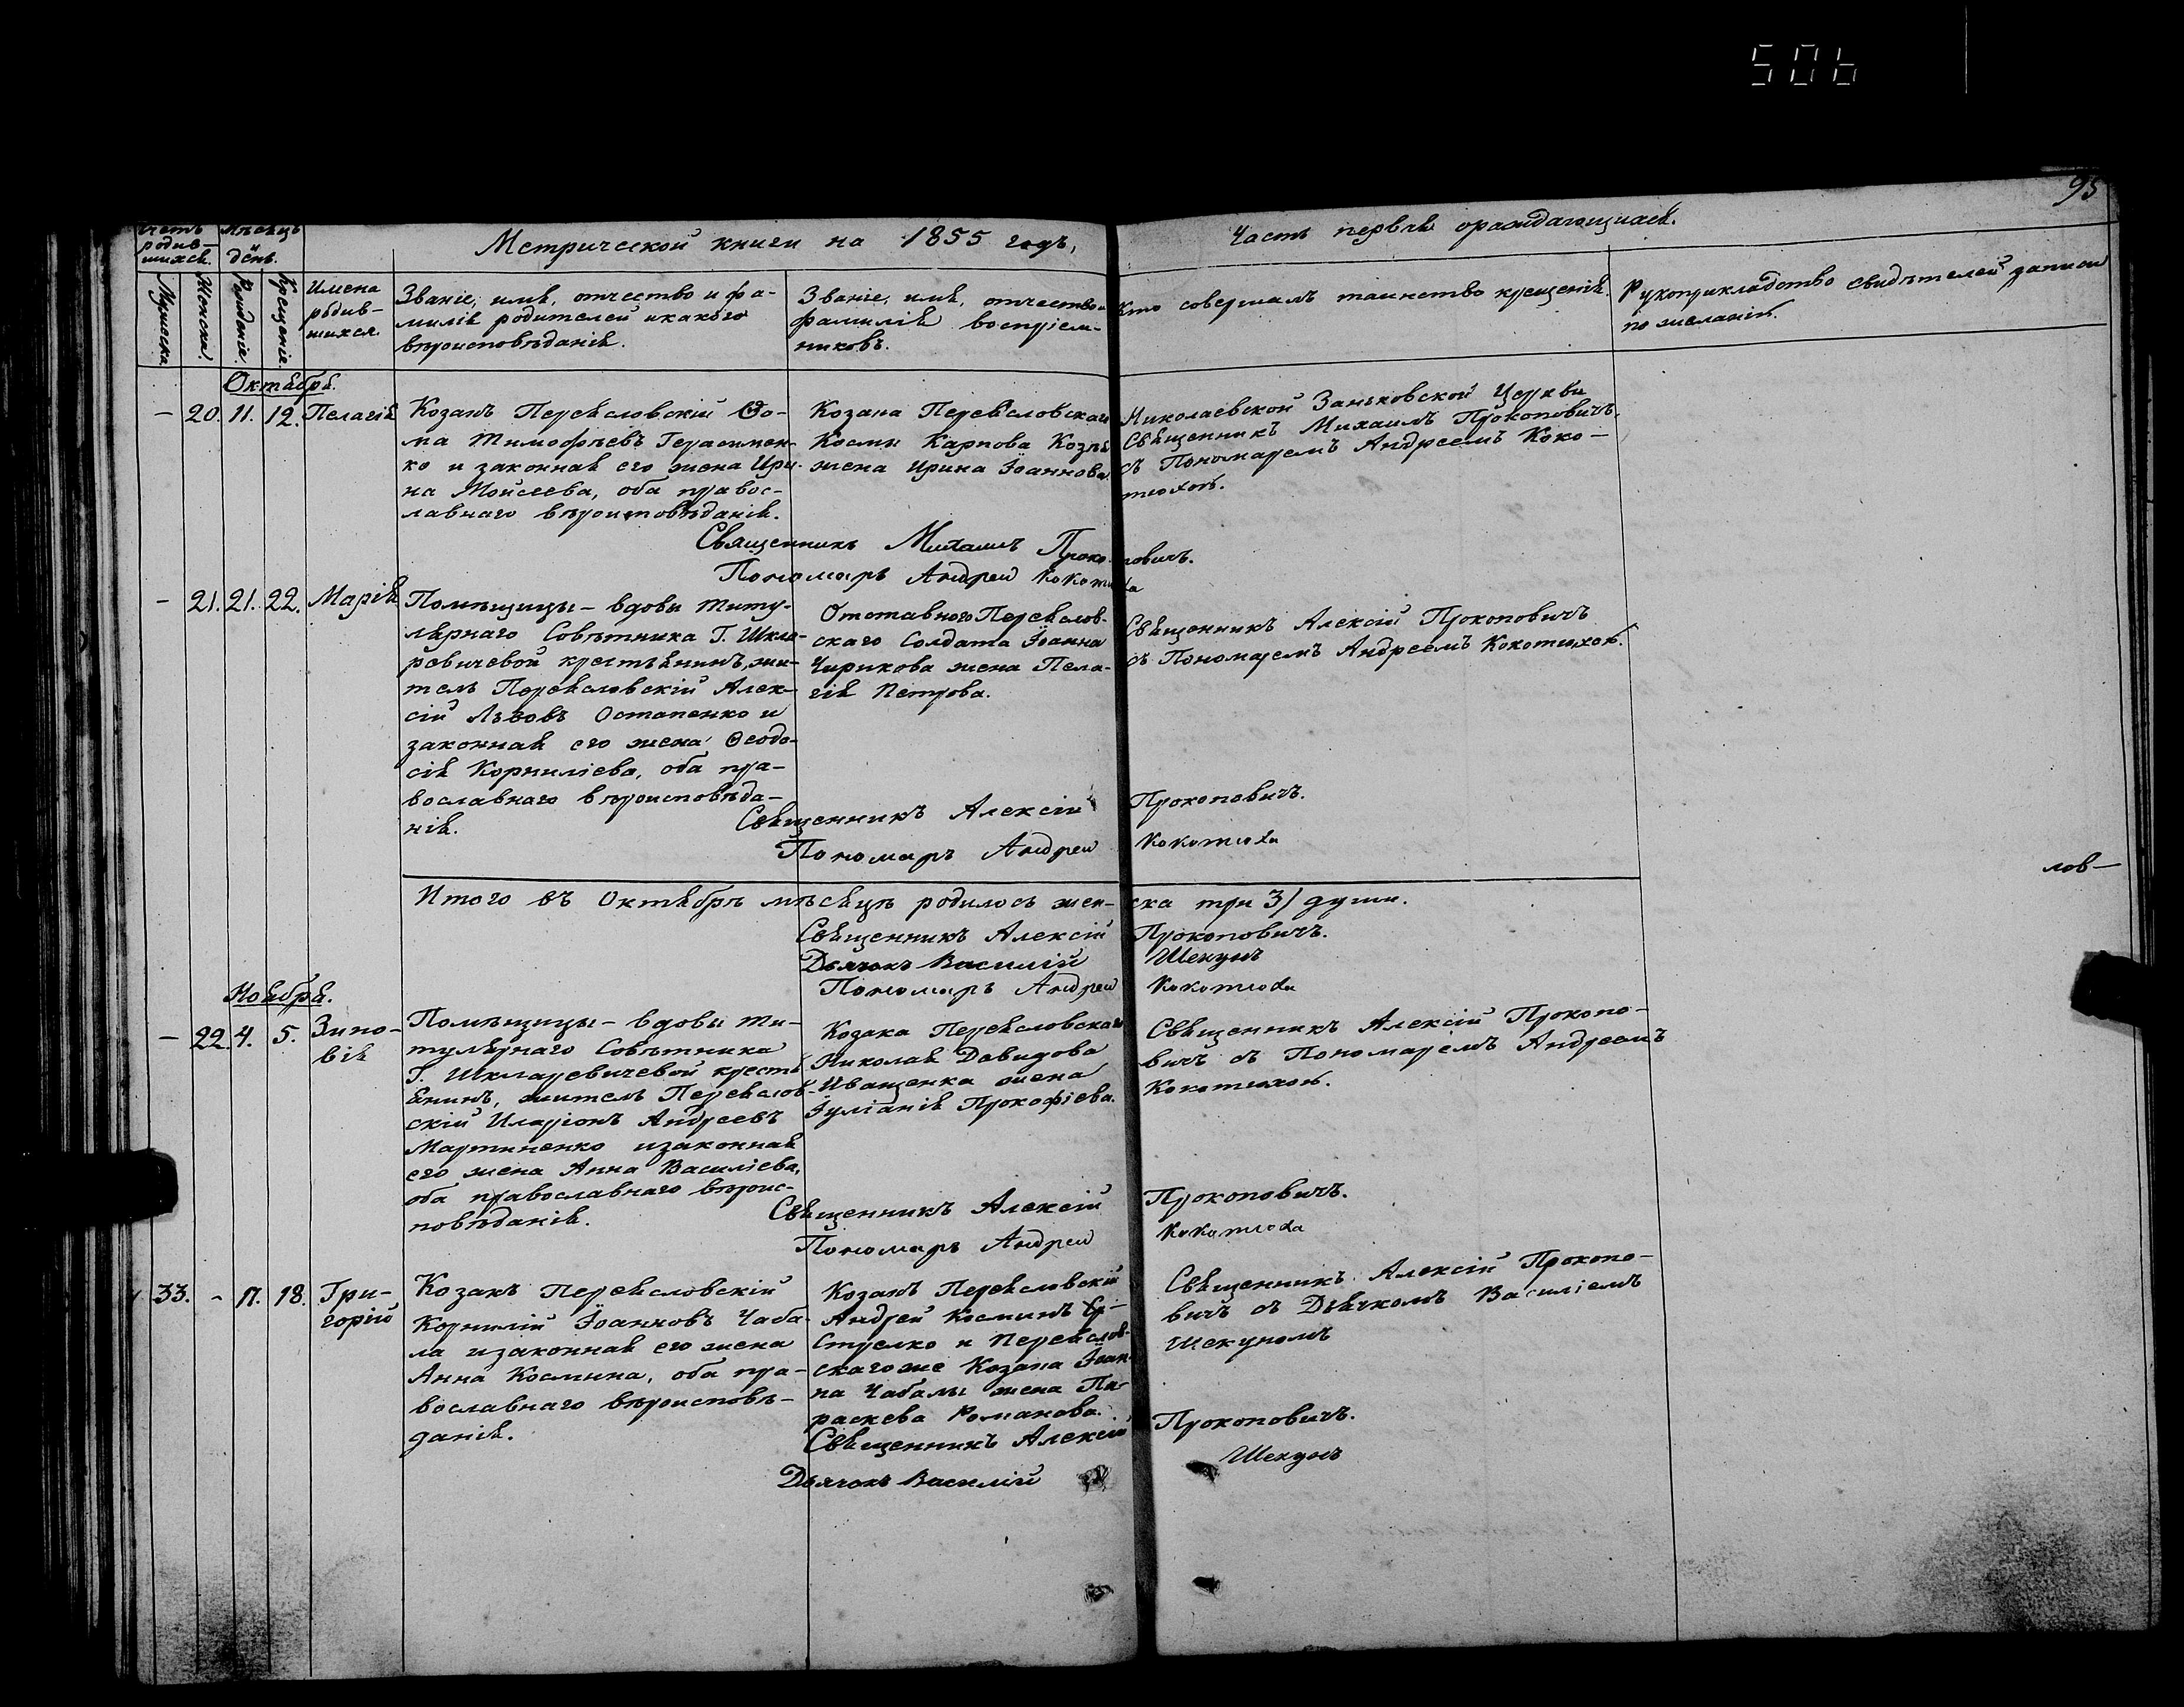 506
95
Метрической книги на 1855 годъ,
Часть первая ораждающихся.
Счетъ родив-
шихся.
Мѣсяцъ
день.
Мужеска.
Женска.
Рожденіе.
Крещеніе.
Имена
родив-
шихся.
Званіе, имя, отчество и фа-
милія родителей икакого
вѣроисповѣданія.
Званіе, имя, отчество и
фамилія воспріем-
никовъ.
Кто совершалъ таинство крещенія.
Рукоприкладство свидѣтелей записи
по желанію.
Октября.
– 20. 11. 12. Пелагія
Козакъ Переясловскій Ѳо-
ма Тимофѣевъ Герасимен-
ко и законная его жена Ири-
на Мойсеева, оба правос-
лавнаго вѣроисповѣданія.
Козака Переясловскаго
Космы Карпова Козла
жена Ирина Іоаннова.
Николаевской Заньковской Церкви
Священникъ Михаилъ Прокоповичъ
съ Пономаремъ Андреемъ Коко-
тюхою.
Священникъ Михаилъ Прокоповичъ.
Пономарь Андрей Кокотюха
– 21. 21. 22. Марія
Помѣщицы – вдовы титу-
лярнаго Совѣтника Г. Шкля-
ревичевой крестьянинъ, жи-
тель Переясловскій Алек-
сій Львовъ Остапенко и
законная его жена Ѳеодо-
сія Корниліева, оба пра-
вославнаго вѣроисповѣда-
нія.
Отставного Переяслов-
скаго Солдата Іоанна
Чирикова жена Пела-
гія Петрова.
Священникъ Алексій Прокоповичъ
съ Пономаремъ Андреемъ Кокотюхою.
Священникъ Алексій Прокоповичъ.
Пономарь Андрей Кокотюха
лов–
Итого въ Октябрѣ мѣсяцѣ родилось жен-ска три 3/ души.
Священникъ Алексій Прокоповичъ.
Дьячокъ Василій Шекунъ
Пономарь Андрей Кокотюха
Ноября.
– 22. 4. 5. Зино-
вія
Помѣщицы – вдовы ти-
тулярнаго Совѣтника
Г. Шкляревичевой кресть
янинъ, житель Переяслов-
скій Иларіонъ Андреевъ
Мартиненко изаконная
его жена Анна Василіева,
оба православнаго вѣроис-
повѣданія.
Козака Переясловскаго
Николая Давидова
Иващенка жена
Іуліанія Прокофіева.
Священникъ Алексій Прокопо-
вичъ съ Пономаремъ Андреемъ
Кокотюхою.
Священникъ Алексій Прокоповичъ.
Пономарь Андрей Кокотюха
33. – 17. 18. Гри-
горій
Козакъ Переясловскій
Корнилій Іоанновъ Чаба-
ла изаконная его жена
Анна Космина, оба пра-
вославнаго вѣроисповѣ-
данія.
Козакъ Переясловскій
Андрей Косминъ
Стрелко и Переяслов-
скагоже Козака Іоан-
на Чабалы жена Па-
раскева Романова.
Священникъ Алексій Прокопо-
вичъ съ Дьячкомъ Василіемъ
Шекуномъ
Священникъ Алексій Прокоповичъ.
Дьячокъ Василій Шекунъ